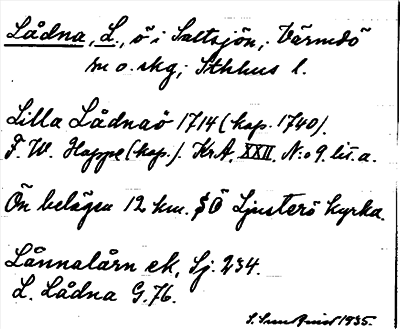 Lådna, L., ö i Saltsjön, Värmdö
sn o. skg; Sthlms l.
Lilla Lådnaö 1714 (kop. 1740).
F. W. Hoppe (kop.). KrA, XXII, N:o 9. lit. a.
Ön belägen 12 km. SÖ Ljusterö kyrka.
Lännalårn ek, Sj. 234.
L. Lådna G. 76.
1935.